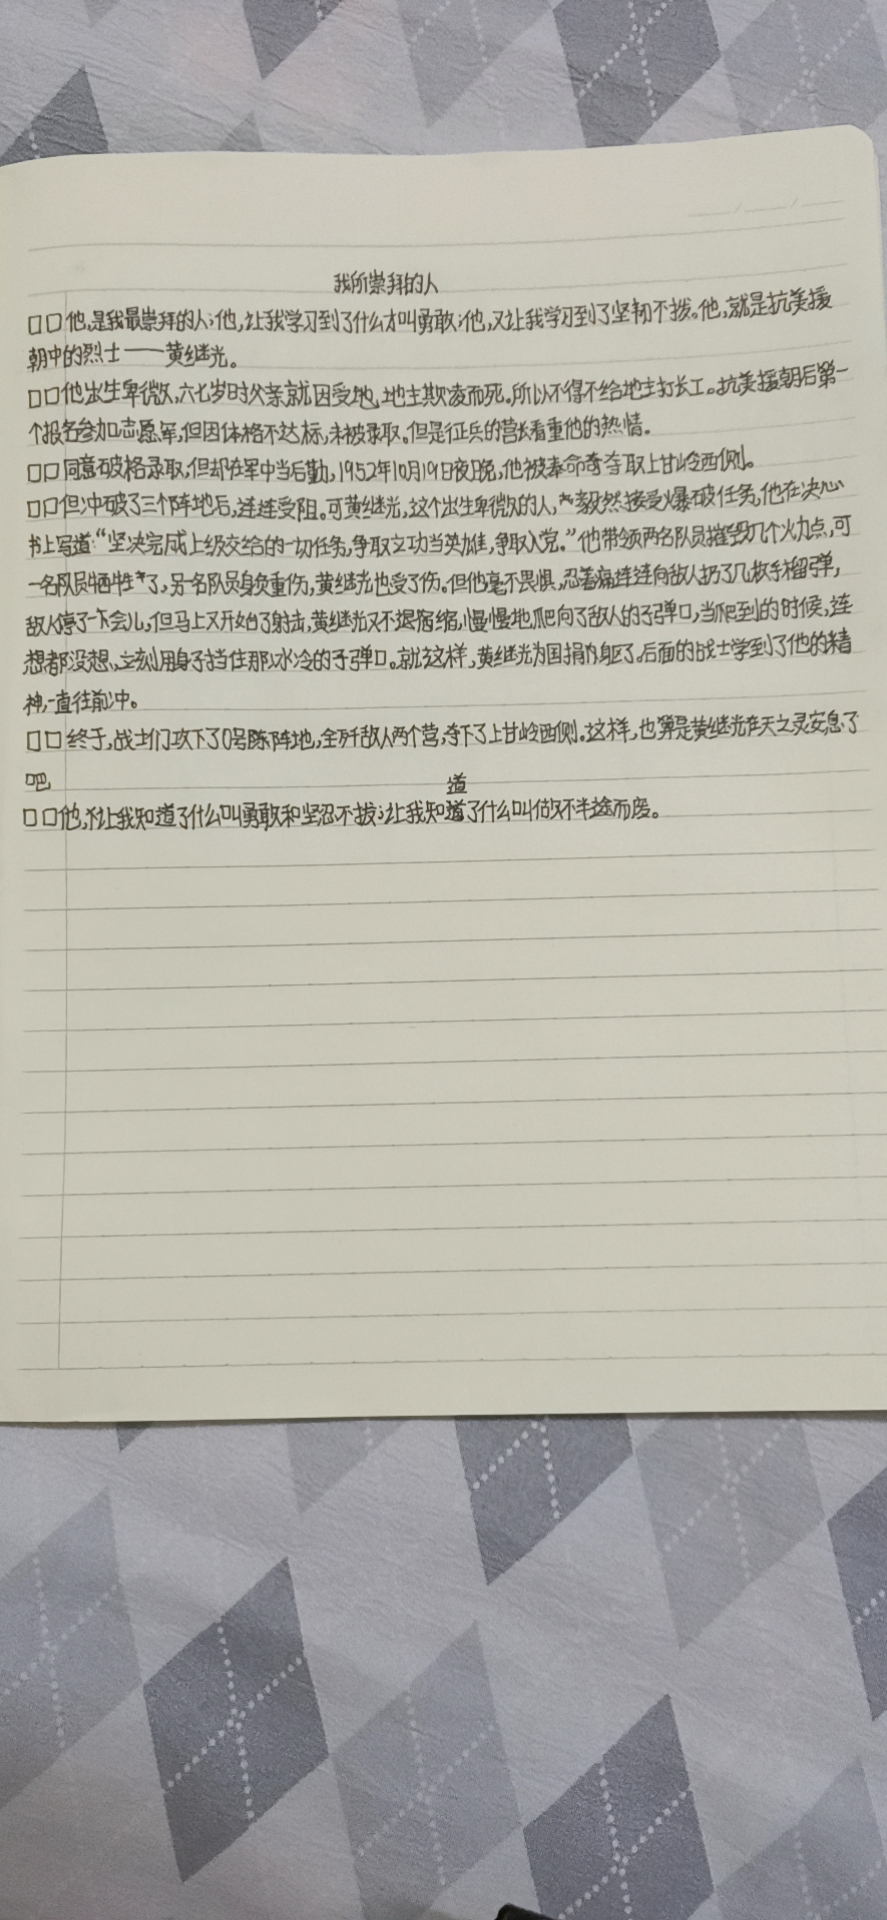 我所崇拜的人
□□他,是我最崇拜的人;他,让我学习到了什么才叫勇敢;他,又让我学习到了坚韧不拨。他,就是抗美援
朝中的烈士——黄继光。
□□他出生卑微,六七岁时父亲就因受地,地主欺凌而死。所以不得不给地主打长工。抗美援朝后第一
个报名参加志愿军,但因体格不达标,未被录取。但是征兵的营长看重他的热情。
□□同意破格录取,但却在军中当后勤,1952年10月19日夜晚,他被奉命夺取上甘岭西侧。
□□但冲破了三个阵地后,连连受阻。可黄继光,这个出生卑微的人,毅然接受爆破任务,他在决心
书上写道:“坚决完成上级交给的一切任务,争取立功当英雄,争取入党。”他带领两名队员摧毁几个火力点,可
一名队员牺牲了,另一名队员身负重伤,黄继光也受了伤。但他毫不畏惧,忍着痛连连向敌人扔了几枚手榴弹,
敌人停了一会儿,但马上又开始了射击,黄继光又不退缩,慢慢地爬向了敌人的子弹口,当爬到的时候,连
想都没想,立刻用身子挡住那冰冷的子弹口。就这样,黄继光为国捐躯了。后面的战士学到了他的精
神,一直往前冲。
□□终于,战士们攻下了0号阵地,全歼敌人两个营,夺下了上甘岭西侧。这样,也算是黄继光在天之灵安息了
吧
道
□□他,让我知道了什么叫勇敢和坚忍不拔;让我知道了什么叫做不半途而废。